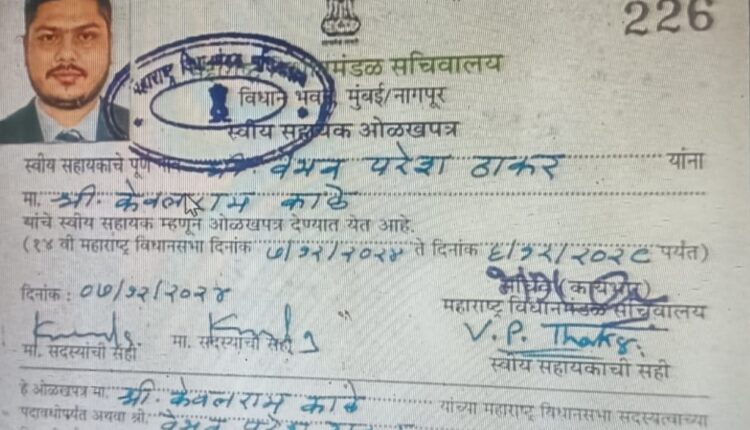 226
विधानमंडळ सचिवालय
विधान भवन, मुंबई/नागपूर
स्वीय सहायक ओळखपत्र
स्वीय सहायकाचे पूर्ण श्री. वेभव परेश ठाकर यांना
मा. श्री. केवलराम काळे
यांचे स्वीय सहायक म्हणून ओळखपत्र देण्यात येत आहे.
(१४ वी महाराष्ट्र विधानसभा दिनांक ७/१२/२०२४ ते दिनांक ६/१२/२०२९ पर्यंत)
दिनांक : ०७/१२/२०२४
(कार्यभार)
महाराष्ट्र विधानमंडळ सचिवालय
V. P. Thakar
मा. सदस्यांची सही मा. सदस्यांची सही
स्वीय सहायकाची सही
हे ओळखपत्र मा. श्री. केवलराम काळे यांच्या महाराष्ट्र विधानसभा सदस्यत्वाच्या
पदावधीपर्यंत अथवा श्री. वेभव परेश